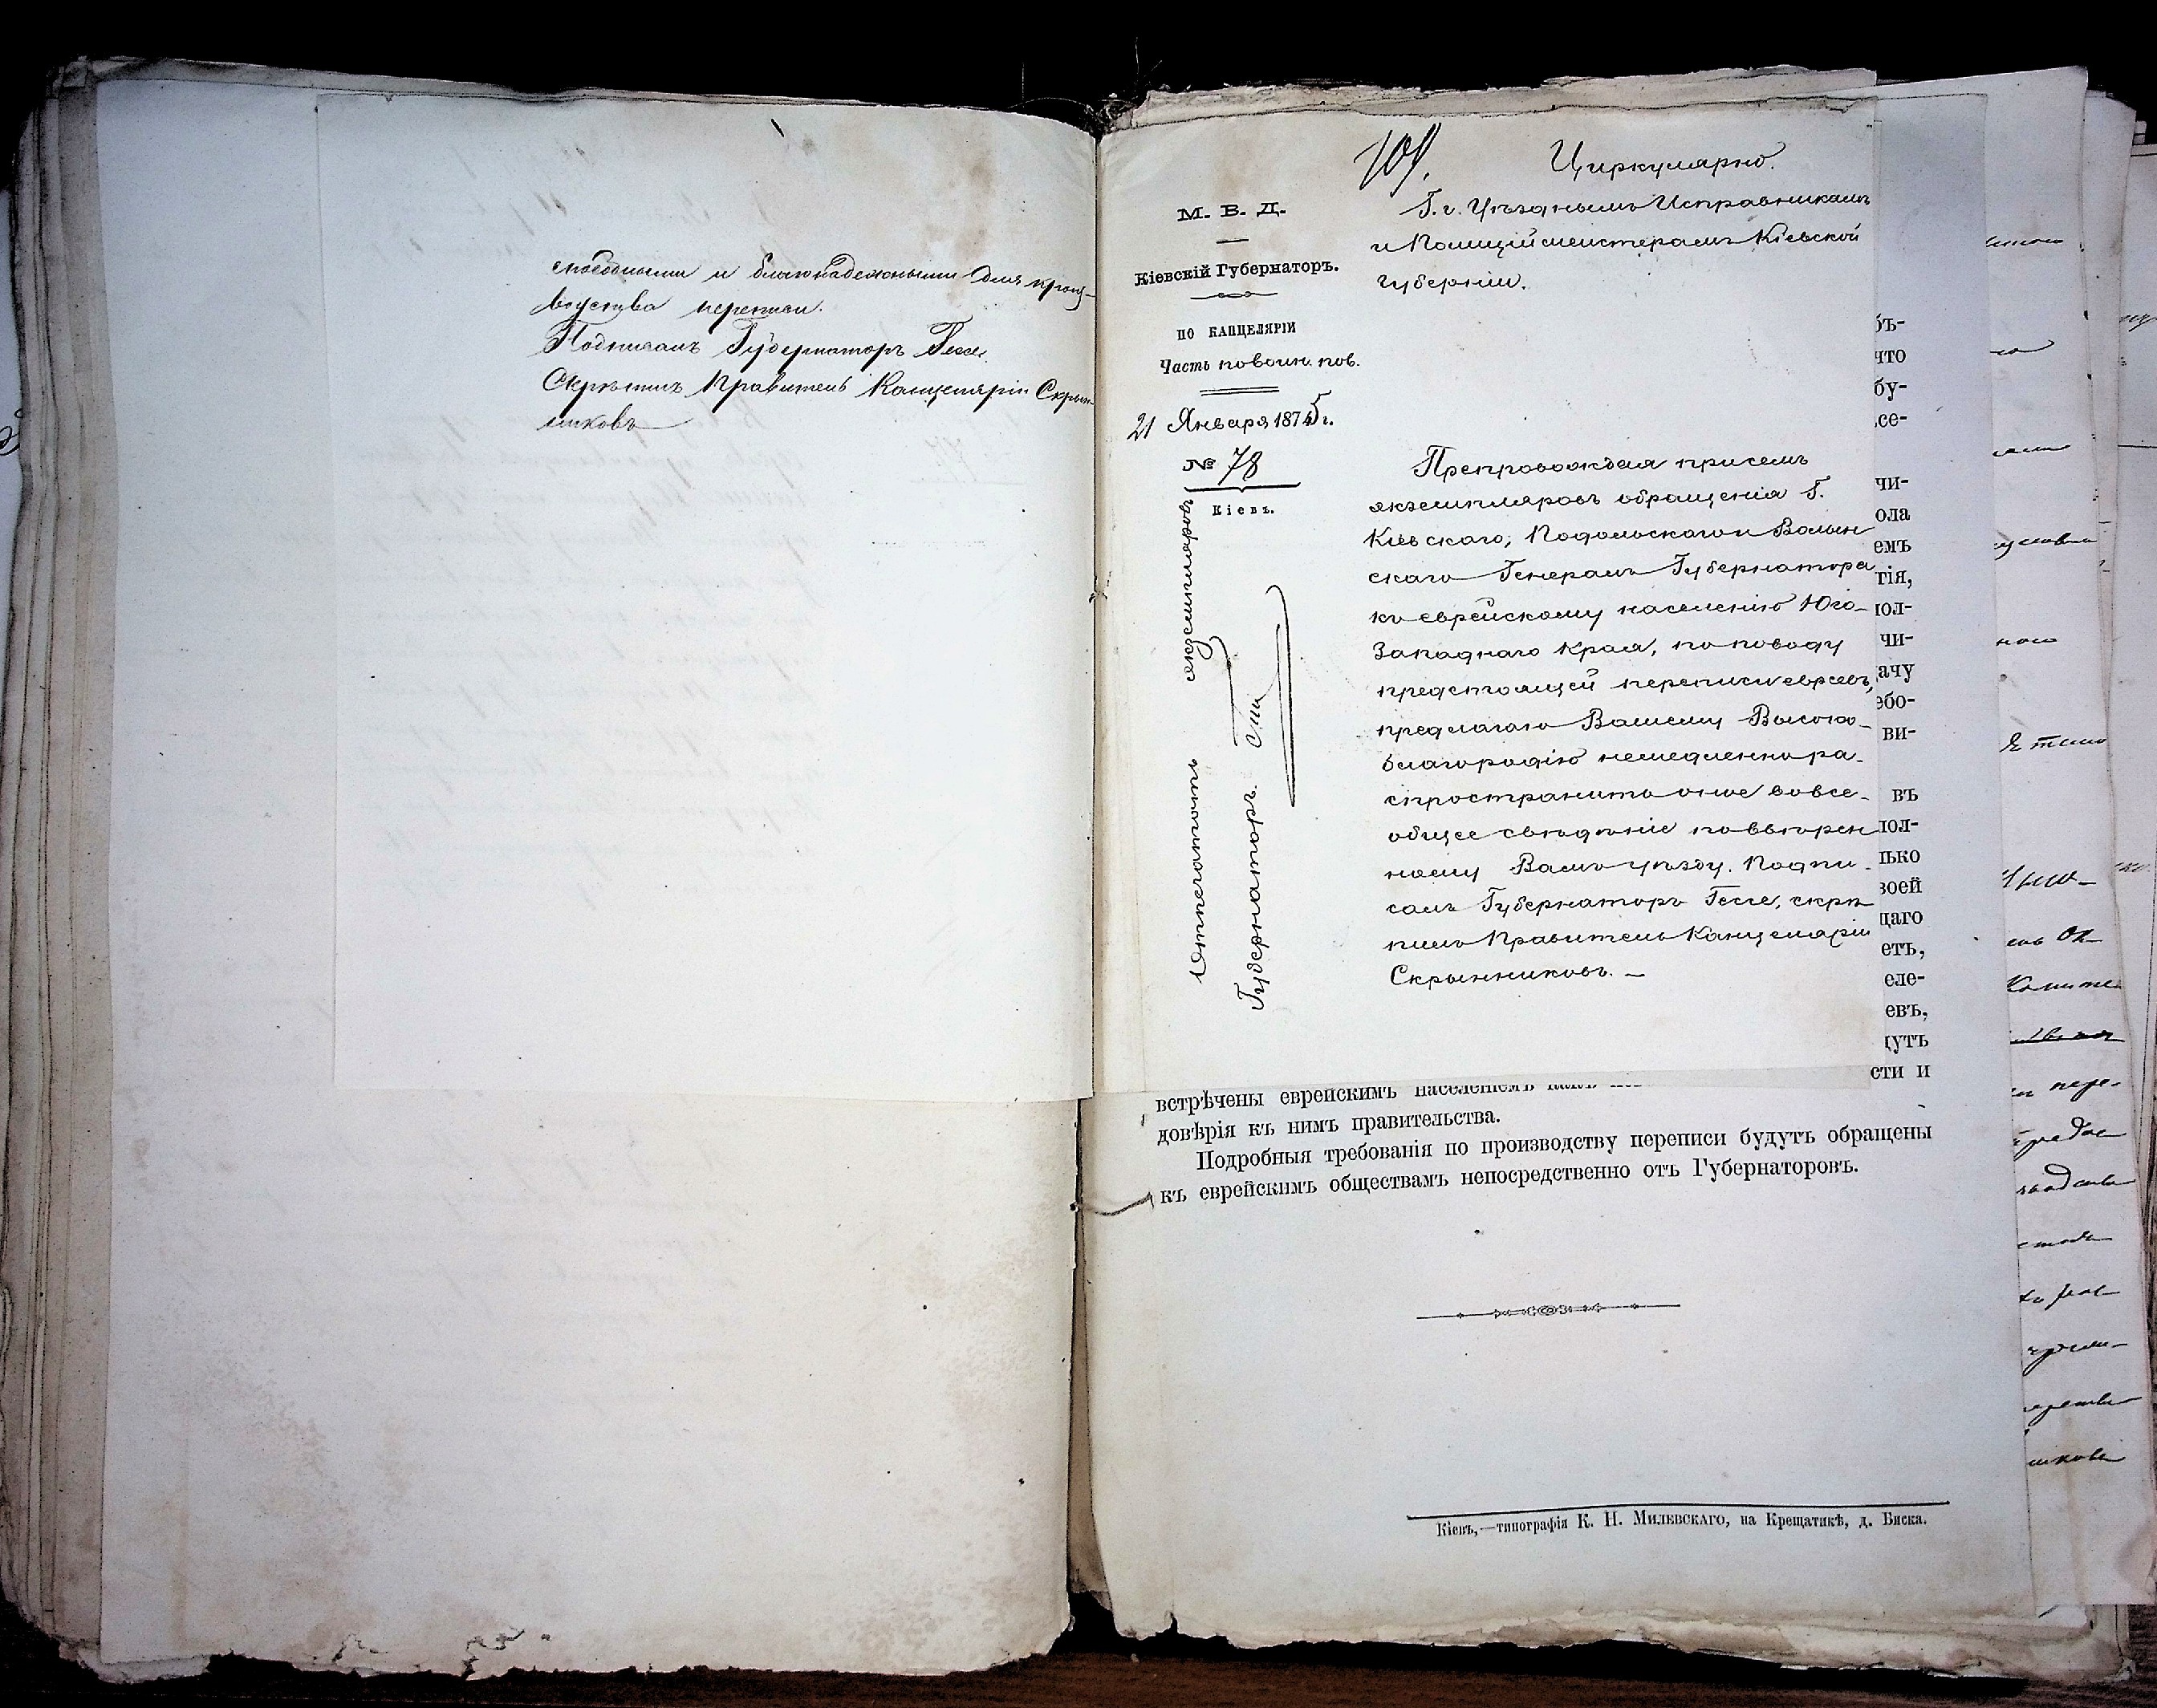 способными и благонадежными для произ-
водства переписи.
Подписалъ Губернаторъ Гессе.
Скрѣпилъ Правитель Канцеляріи Скрын-
никовъ
109.
Циркулярно.
М. В. Д.
Кіевскій Губернаторъ.
ПО КАНЦЕЛЯРІИ
Часть повоин. пов.
21 Января 1875 г.
№ 78
Кіевъ.
Г.г. Уѣзднымъ Исправникамъ
и Полицiймейстерамъ Кіевской
губерніи.
Препровождая присемъ
экземпляровъ обращенія Г.
Кіевскаго, Подольскаго и Волын
скаго Генералъ Губернатора
къ еврейскому населенію Юго-
Западнаго Края, по поводу
предстоящей переписи евреевъ,
предлагаю Вашему Высоко-
благородію немедленно ра-
спространить оные вовсе-
общее свѣдѣніе по ввѣрен
ному Вамъ уѣзду. Подпи-
салъ Губернаторъ Гессе, скрѣ
пилъ Правитель Канцеляріи
Скрынниковъ. —
Отпечатать экземпляровъ
Губернаторъ.
бъ-
что
бу-
се-
чи-
ола
емъ
тія,
пол-
чи-
ачу
ебо-
ви-
въ
пол-
лько
воей
щаго
етъ,
еле-
евъ,
дутъ
сти и
встрѣчены еврейскимъ населеніемъ
довѣрія къ нимъ правительства.
Подробныя требованія по производству переписи будутъ обращены
къ еврейскимъ обществамъ непосредственно отъ Губернаторовъ.
Кіевъ,—типографія К. Н. Милевскаго, на Крещатикѣ, д. Биска.